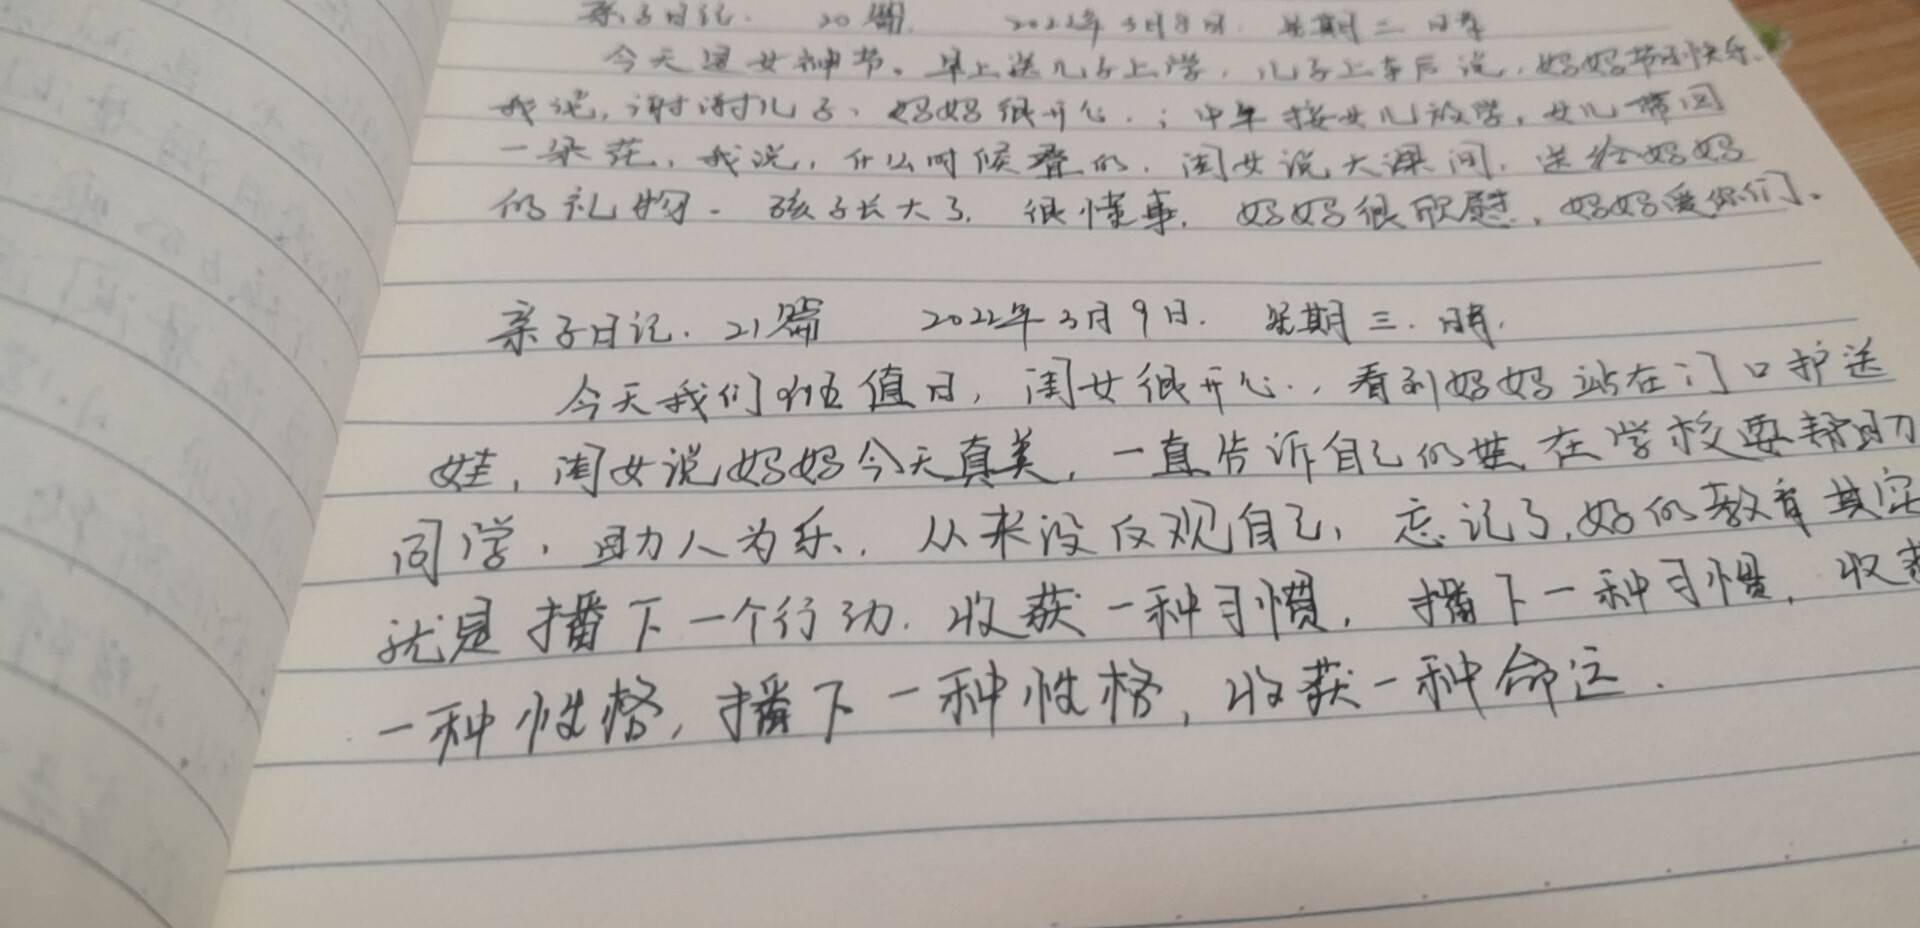 亲子日记. 20篇. 2022年3月8日. 星期二 晴
今天是女神节。早上送儿子上学, 儿子上车后说, 妈妈节日快乐.
我说, 谢谢儿子、妈妈很开心.; 中午接女儿放学, 女儿带回
一朵花, 我说, 什么时候叠的. 闺女说大课间. 送给妈妈
的礼物. 孩子长大了. 很懂事. 妈妈很欣慰. 妈妈爱你们.
亲子日记. 21篇 2022年3月9日. 星期三. 晴.
今天我们班值日, 闺女很开心., 看到妈妈站在门口护送
娃, 闺女说妈妈今天真美, 一直告诉自己的娃在学校要帮助
同学, 助人为乐., 从来没反观自己, 忘记了, 好的教育其实
就是播下一个行动. 收获一种习惯, 播下一种习惯, 收获
一种性格, 播下一种性格, 收获一种命运.